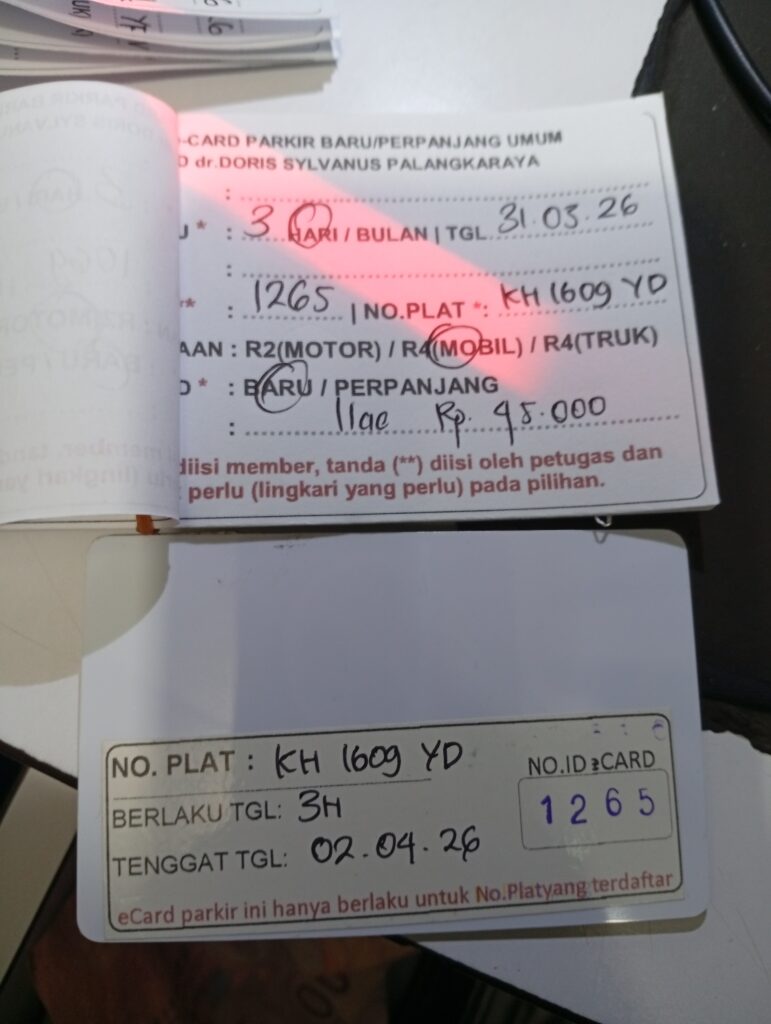 -CARD PARKIR BARU/PERPANJANG UMUM
D dr.DORIS SYLVANUS PALANGKARAYA
: ........
U * : 3 HARI / BULAN | TGL 31.03.26
: ........
** : 1265 | NO.PLAT *: KH 1609 YD
AAN : R2(MOTOR) / R4(MOBIL) / R4(TRUK)
D * : BARU / PERPANJANG
: Rp. 45.000
diisi member, tanda (**) diisi oleh petugas dan
perlu (lingkari yang perlu) pada pilihan.
NO. PLAT : KH 1609 YD
NO.ID CARD
1265
BERLAKU TGL: 3H
TENGGAT TGL: 02.04.26
eCard parkir ini hanya berlaku untuk No.Platyang terdaftar